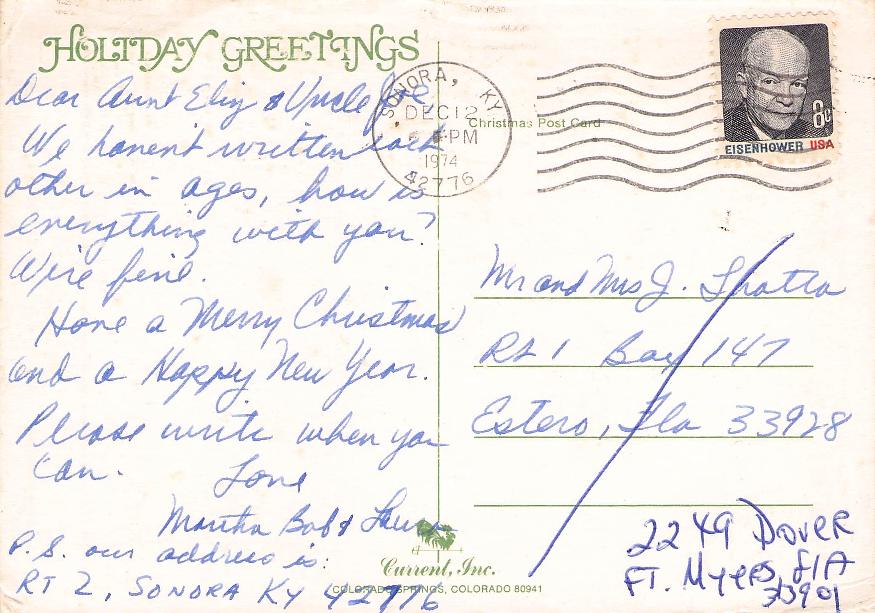 HOLIDAY GREETINGS
Dear Aunt Eliz & Uncle Joe
We haven't written each
other in ages, how is
everything with you?
We're fine.
Have a Merry Christmas
and a Happy New Year.
Please write when you
can.
Love
Martha Bob &
P.S. our address is:
RT 2, SONORA KY 42776
SONORA, KY
DEC 12
PM
1974
42776
Christmas Post Card
8c
EISENHOWER USA
Mr and Mrs J.
Rt 1 Box 147
Estero, Fla 33928
2249 DOVER
FT. Myers, FlA
33901
Current, Inc.
COLORADO SPRINGS, COLORADO 80941